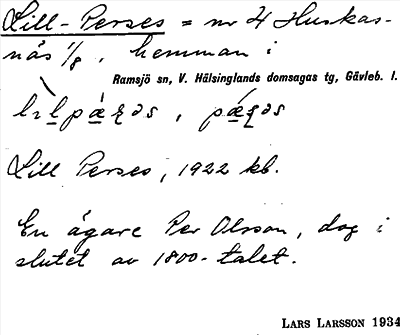 Lill-Perses = nr 4 Huskas-
nås 1/8, hemman i
Ramsjö sn, V. Hälsinglands domsagas tg, Gävleb. l.
Lill Perses, 1922 kb.
En ägare Per Olsson, dog i
slutet av 1800-talet.
LARS LARSSON 1934